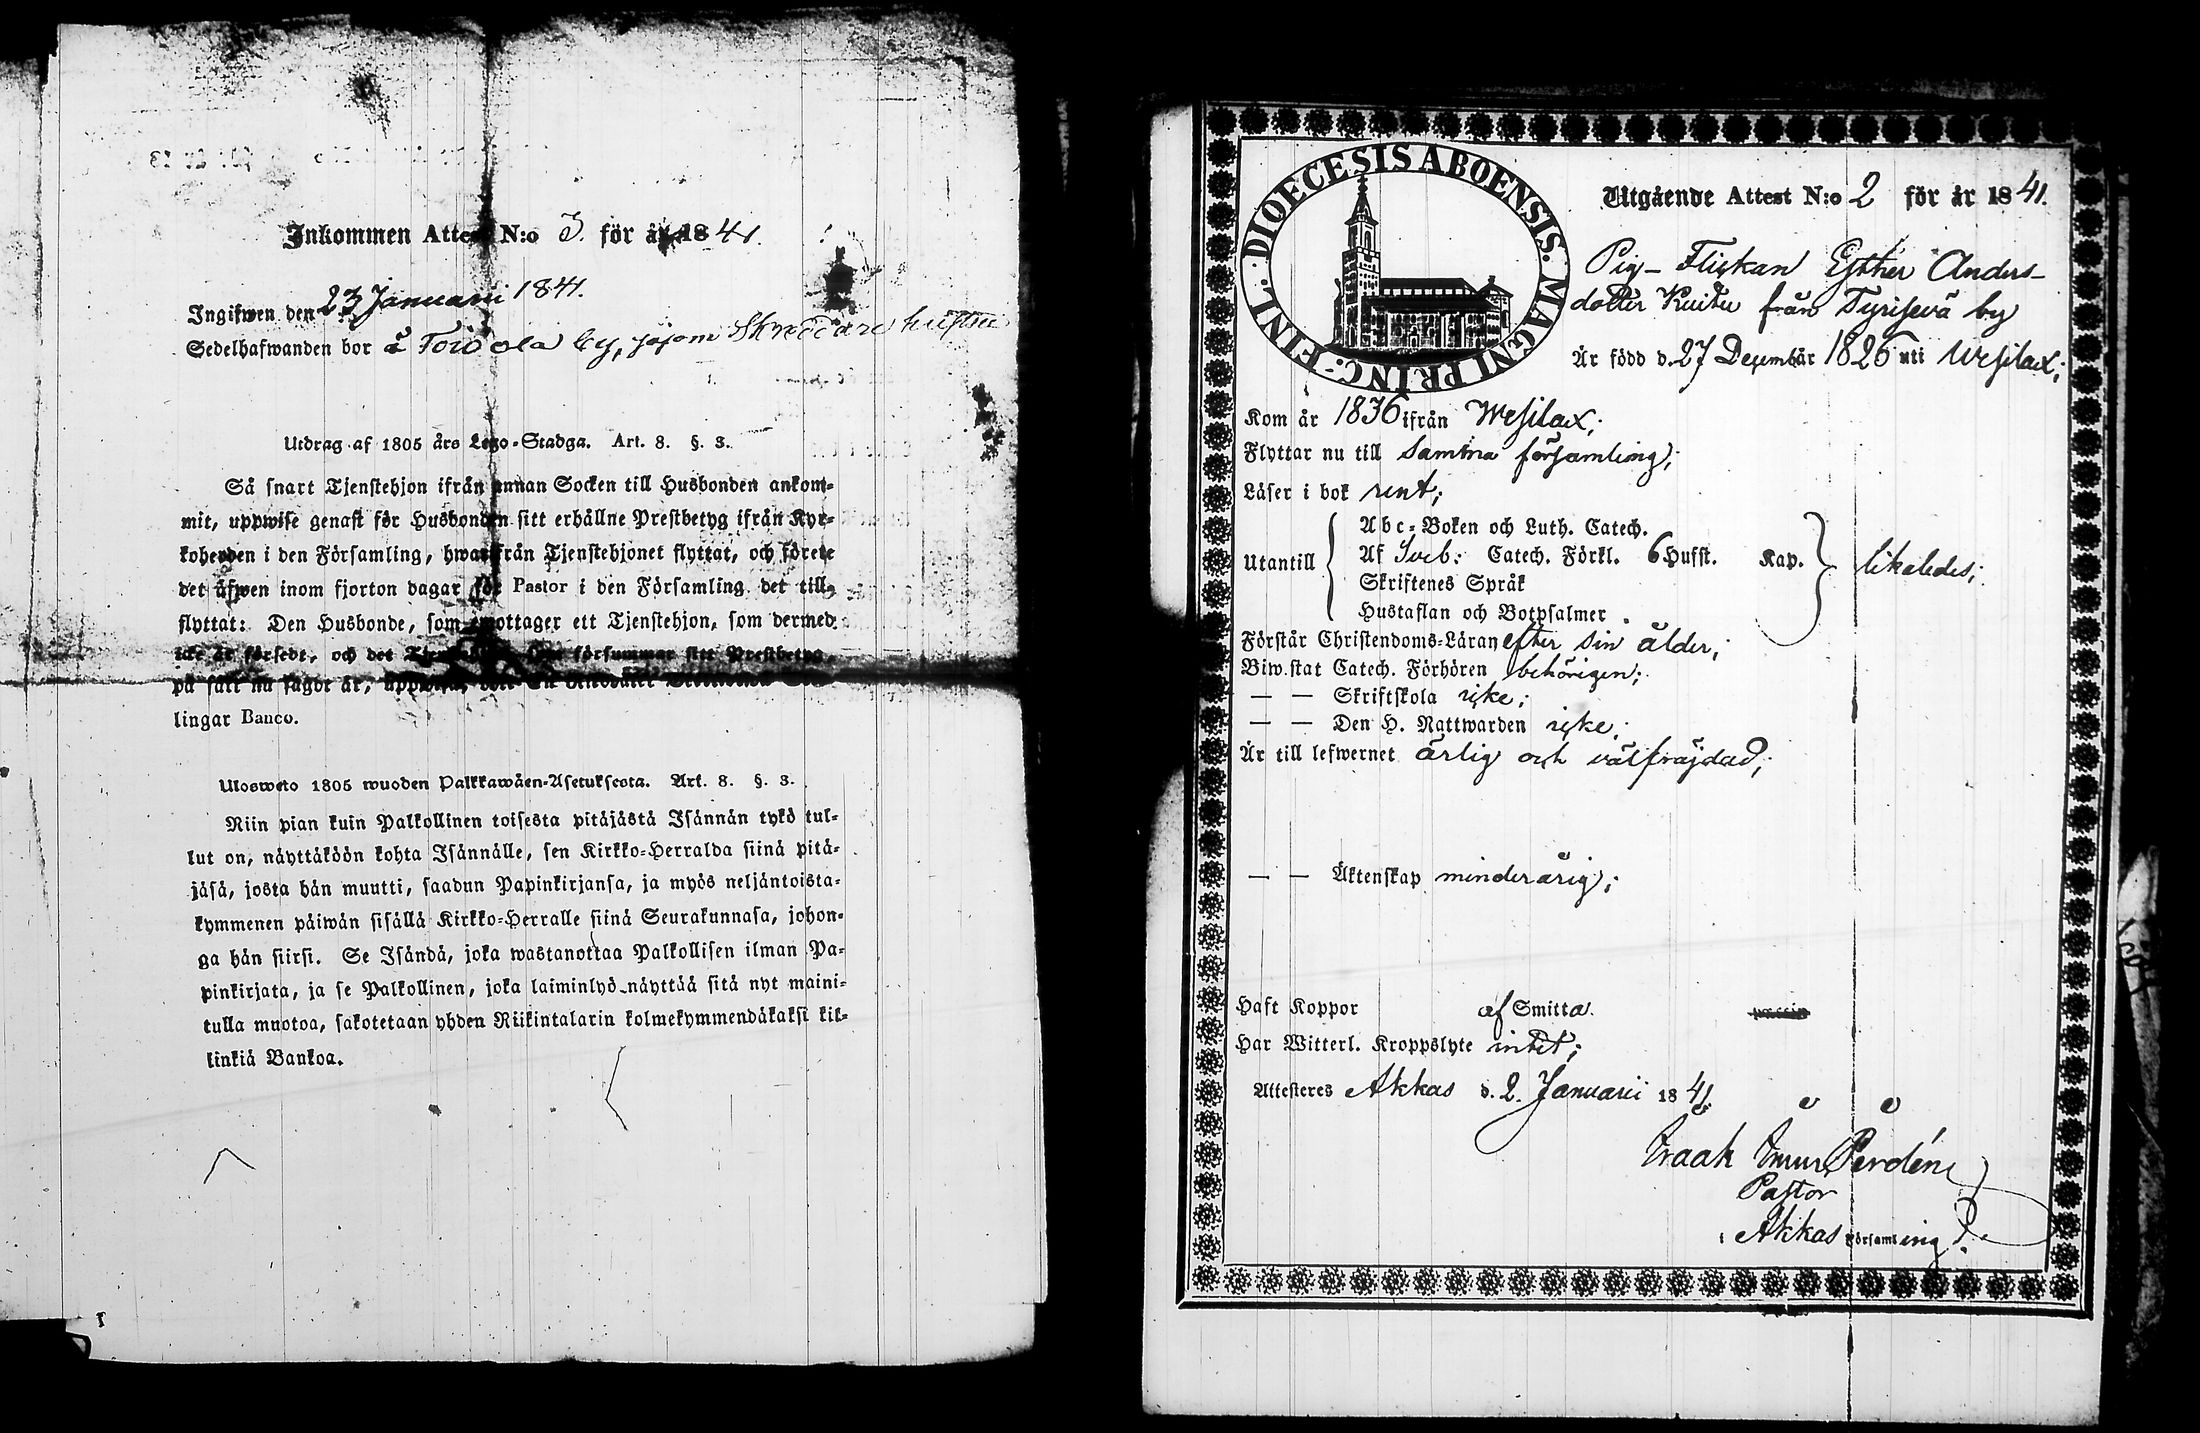 Inkommen Attest N:o 3. för år 1841.
Ingifwen den 23 Januarii 1841.
Sedelhafwanden bor å Toivola by, såsom Skräddare hustru
Utdrag af 1805 års Lego-Stadga. Art. 8. §. 3.
Så snart Tjenstehjon ifrån annan Socken till Husbonden ankom-
mit, uppwise genast för Husbonden sitt erhållne Prestbetyg ifrån Kyr-
koherden i den Församling, hwarifrån Tjenstehjonet flyttat, och förete
det äfwen inom fjorton dagar för Pastor i den Församling det till-
flyttat: Den Husbonde, som emottager ett Tjenstehjon, som dermed
icke är försedt, och det som försummar sitt Prestbetyg,
på sätt nu sagdt är,
lingar Banco.
Ulosweto 1805 wuoden Palkkawäen-Asetuksesta. Art. 8. §. 3.
Niin pian kuin Palkollinen toisesta pitäjästä Isännän tykö tul-
lut on, näyttäköön kohta Isännälle, sen Kirkko-Herralda siinä pitä-
jäsä, josta hän muutti, saadun Papinkirjansa, ja myös neljäntoista-
kymmenen päiwän sisällä Kirkko-Herralle siinä Seurakunnasa, johon-
ga hän siirsi. Se Isändä, joka wastanottaa Palkollisen ilman Pa-
pinkirjata, ja se Palkollinen, joka laiminlyö näyttää sitä nyt maini-
tulla muotoa, sakotetaan yhden Riikintalarin kolmekymmendäkaksi kil-
linkiä Bankoa.
DIOECESIS ABOENSIS. MAGNI PRINC: FINL.
Utgående Attest N:o 2 för år 1841.
Pig- Flickan Esther Anders-
dotter Kuitu från Tyrisevä by
Är född d. 27 Decembär 1826 uti Wesilax;
Kom år 1836 ifrån Wesilax;
Flyttar nu till samma församling;
Läser i bok rent;
Utantill
Abc-Boken och Luth. Catech.
Af Sveb: Catech. Förkl. 6 Hufst. Kap.
Skriftenes Språk
Hustaflan och Botpsalmer
likaledes;
Förstår Christendoms-Läran efter sin ålder;
Biwistat Catech. Förhören behörigen;
— — Skriftskola icke;
— — Den H. Nattwarden icke;
Är till lefwernet ärlig och välfräjdad;
— — Äktenskap minderårig;
Haft Koppor af Smitta.
Har Witterl. Kroppslyte intet;
Attesteres Akkas d. 2. Januarii 1841.
Perdén
Pastor
i Akkas Församling